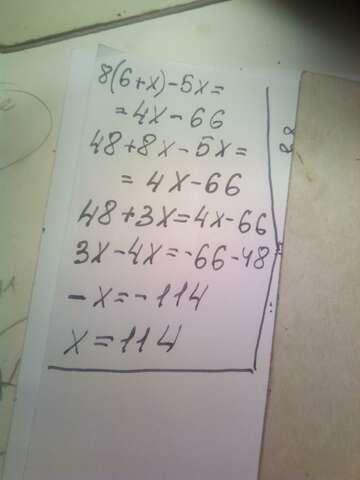 8(6+x)-5x=
=4x-66
48+8x-5x=
=4x-66
48+3x=4x-66
3x-4x=-66-48
-x=-114
x=114